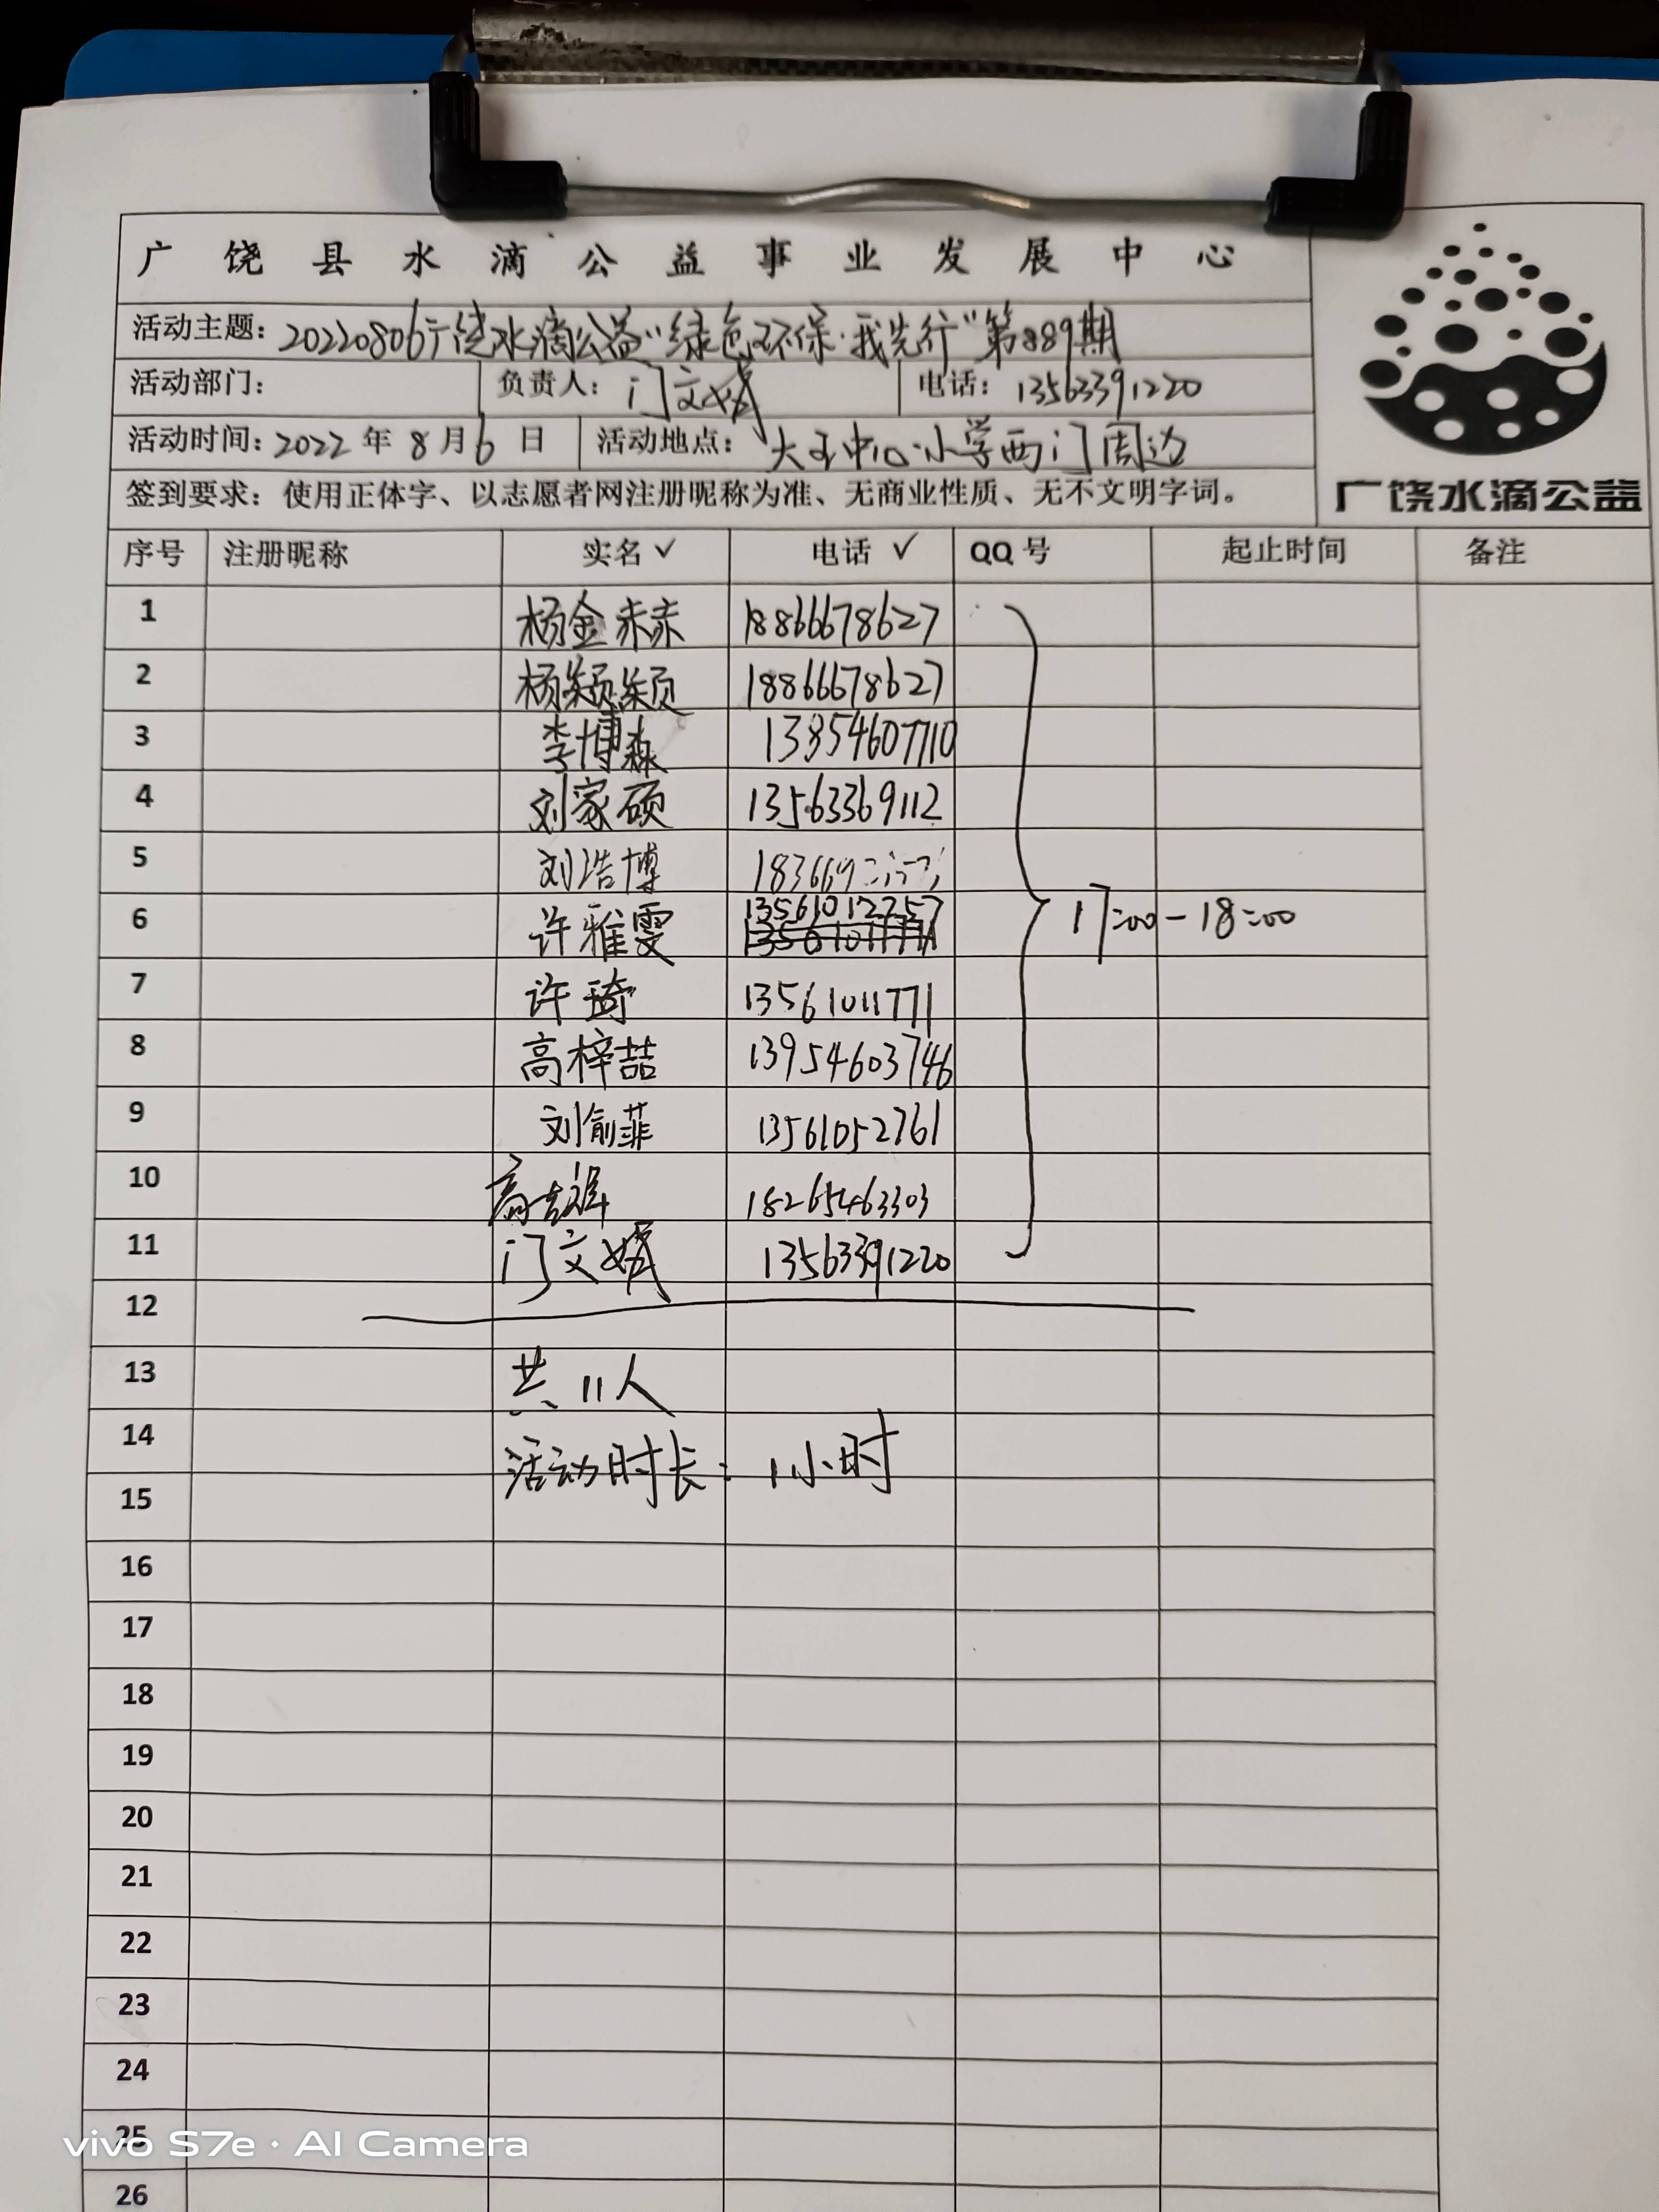 广饶县水滴公益事业发展中心
活动主题：20220806广饶水滴公益“绿色环保·我先行”第889期
活动部门： 负责人：门文娥 电话：13563391220
活动时间：2022年8月6日 活动地点：大王中心小学西门周边
签到要求：使用正体字、以志愿者网注册昵称为准、无商业性质、无不文明字词。
广饶水滴公益
序号 注册昵称 实名✓ 电话✓ QQ号 起止时间 备注
1 杨金赤赤 18866678627
2 杨颖颖 18866678627
3 李博森 13854607710
4 刘家硕 13563369112
5 刘浩博 183669
6 许雅雯 13561012757
13561011771
17:00-18:00
7 许琦 13561011771
8 高梓喆 13954603746
9 刘俞菲 13561052761
10 高 18265463303
11 门文娥 13563391220
12
13 共11人
14 活动时长：1小时
15
16
17
18
19
20
21
22
23
24
25
vivo S7e · AI Camera
26